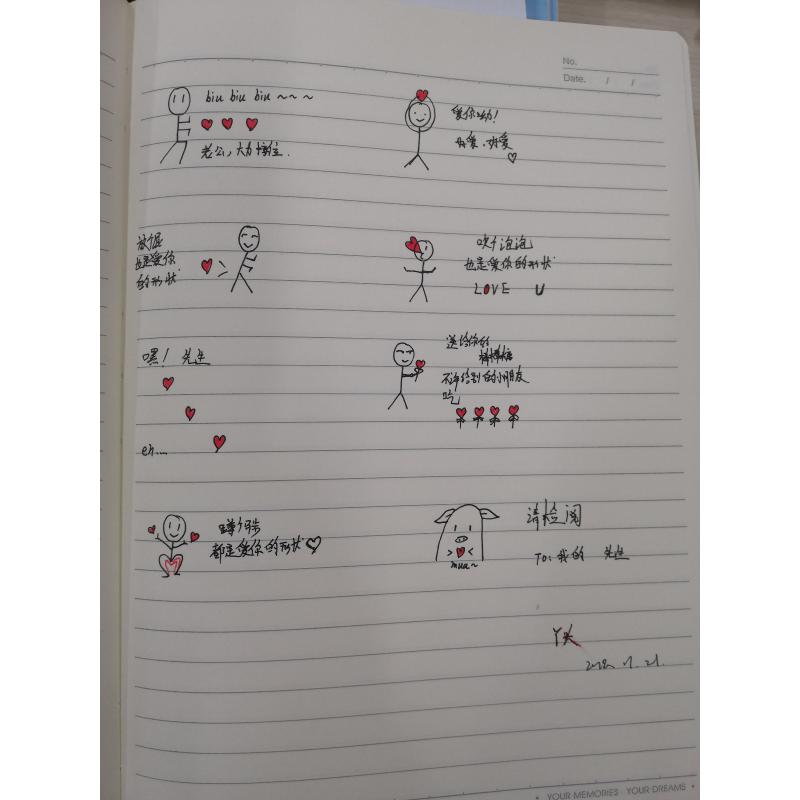 No.
Date. / /
biu biu biu ~~~
老公，大力接住.
爱你呦！
好爱.好爱
放个屁
也是爱你
的形状
吹个泡泡
也是爱你的形状
LOVE U
嘿！ 先生
eh....
送给你的
棒棒糖
不许给别的小朋友
吃
蹲个珠
都是爱你的形状
mua~
请检阅
To: 我的 先生
丫头
YOUR MEMORIES YOUR DREAMS